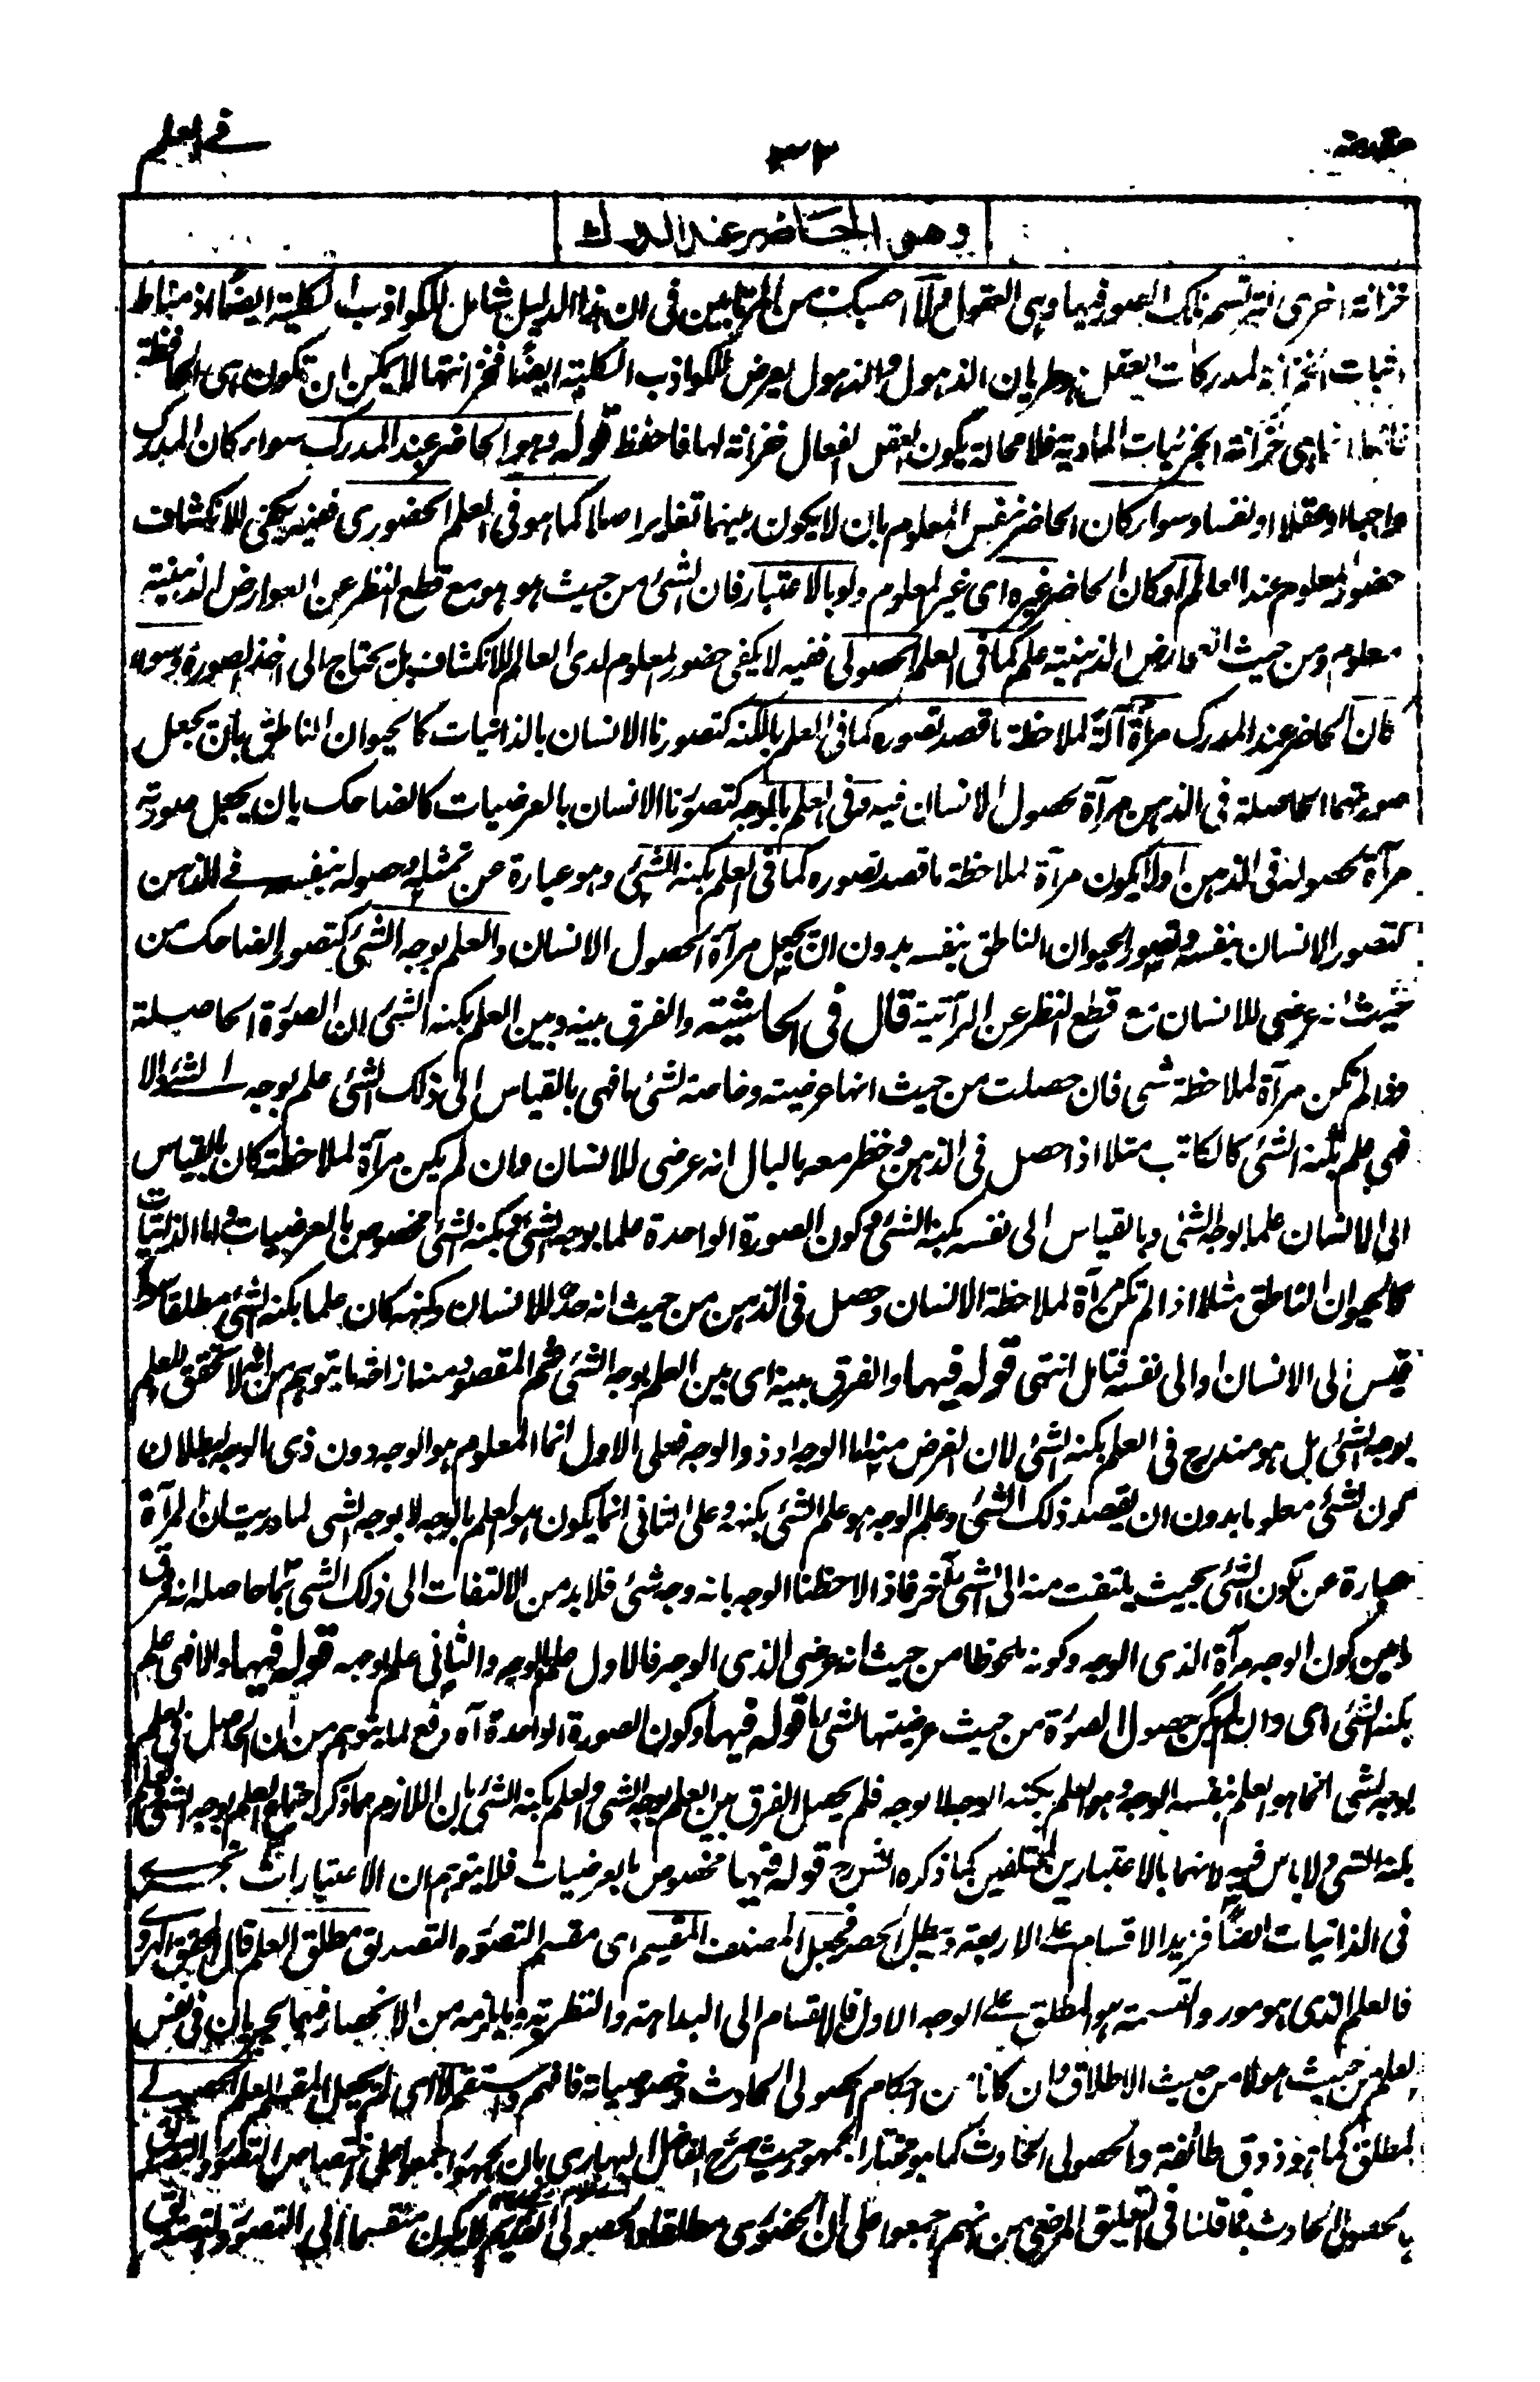 مقدمة
٣٢
في العلم
وهو الحاضر عند المدرك
خزانة اخرى ترتسم تلك الصور فيها وهي العقول ولا اصبك من المرتابين فى ان هذا الدليل شامل للكواذب الكلية ايضًا اذ مناط
اثبات الخزانة لمدركات العقل هو طريان الذهول والذهول يعرض للكواذب الكلية ايضًا فخزانتها لا يمكن ان تكون هى الحافظة
فانها انما هى خزانة الجزئيات المادية فلا محالة يكون العقل الفعال خزانة لها فاحفظ قوله وهو الحاضر عند المدرك سواء كان المدرك
واجبا او عقلا او نفسا وسواء كان الحاضر نفس المعلوم بان لا يكون بينهما تغاير اصلا كما هو فى العلم الحضورى ففيه يكفى للانكشاف
حضور المعلوم عند العالم او كان الحاضر غيره اى غير المعلوم ولو بالاعتبار فان الشئ من حيث هو هو مع قطع النظر عن العوارض الذهنية
معلوم ومن حيث العوارض الذهنية علم كما فى العلم الحصولى ففيه لا يكفى حضور المعلوم لدى العالم للانكشاف بل يحتاج الى اخذ الصورة وسواء
كان الحاضر عند المدرك مرآة آلة لملاحظة ما قصد تصوره كما فى العلم بالكنه كتصورنا الانسان بالذاتيات كالحيوان الناطق بان يجعل
صورتهما الحاصلة فى الذهن مرآة لحصول الانسان فيه وفى العلم بالوجه كتصورنا الانسان بالعرضيات كالضاحك بان يجعل صورته
مرآة لحصوله فى الذهن اولا يكون مرآة لملاحظة ما قصد تصوره كما فى العلم بكنه الشئ وهو عبارة عن تمثله وحصوله بنفسه فى الذهن
كتصور الانسان بنفسه وتصور الحيوان الناطق بنفسه بدون ان يجعل مرآة لحصول الانسان والعلم بوجه الشئ كتصور الضاحك من
حيث انه عرضى للانسان مع قطع النظر عن المرآتية قال فى الحاشية والفرق بينه وبين العلم بكنه الشئ ان الصورة الحاصلة
اذا لم تكن مرآة لملاحظة شئ فان حصلت من حيث انها عرضية وخاصة لشئ ما فهى بالقياس الى ذلك الشئ علم بوجه الشئ والا
فهى علم بكنه الشئ كالكاتب مثلا اذا حصل فى الذهن وخطر معه بالبال انه عرضى للانسان وان لم يكن مرآة لملاحظته كان بالقياس
الى الانسان علما بوجه الشئ وبالقياس الى نفسه بكنه الشئ وكون الصورة الواحدة علما بوجه الشئ وبكنه الشئ مخصوص بالعرضيات واما الذاتيات
كالحيوان الناطق مثلا اذا لم تكن مرآة لملاحظة الانسان وحصل فى الذهن من حيث انه حد للانسان وكنهه كان علما بكنه الشئ مطلقا سواء
قيس الى الانسان او الى نفسه فتامل انتهى قوله فيها والفرق بينه اى بين العلم بوجه الشئ ثم المقصود منه ازاحة ما يتوهم من انه لا تحقق للعلم
بوجه الشئ بل هو مندرج فى العلم بكنه الشئ لان الغرض منه اما الوجه او ذو الوجه فعلى الاول انما المعلوم هو الوجه دون ذى الوجه لبطلان
كون الشئ معلوما بدون ان يقصد ذلك الشئ وعلم الوجه هو علم الشئ بكنهه وعلى الثانى انما يكون هو العلم بالوجه لا بوجه الشئ لما دريت ان المرآة
عبارة عن كون الشئ بحيث يلتفت منه الى الشئ الآخر فاذا لاحظنا الوجه بانه وجه شئ فلا بد من الالتفات الى ذلك الشئ فما حاصله انه فرق
ما بين كون الوجه مرآة لذى الوجه وكونه ملحوظا من حيث انه عرضى لذى الوجه فالاول علم بالوجه والثانى علم بوجهه قوله فيها والا فهى علم
بكنه الشئ اى وان لم يكن حصول الصورة من حيث عرضيتها لشئ ما قوله فيها وكون الصورة الواحدة آه دفع لما يتوهم من ان الحاصل فى العلم
بوجه الشئ انما هو العلم بنفسه الوجه وهو العلم بكنه الوجه لا بوجه فلم يحصل الفرق بين العلم بوجه الشئ والعلم بكنه الشئ بان اللازم مما ذكر اجتماع العلم بوجه الشئ والعلم
بكنه الشئ ولا باس فيه لانهما بالاعتبارين المختلفين كما ذكره الشرح قوله فيها مخصوص بالعرضيات فلا يتوهم ان الاعتبارات تجرى
فى الذاتيات ايضًا فزيد الاقسام على الاربعة وبطل الحصر فجعل المصنف المقسم اى مقسم التصور والتصديق مطلق العلم قال المحقق الهروى
فالعلم الذى هو مورد القسمة هو المطلق على الوجه الاول فالانقسام الى البداهة والنظرية وما يلزمه من الانحصار فيهما يجريان فى نفس
العلم من حيث هو لا من حيث الاطلاق وان كانا من احكام الحصولى الحادث وخصوصياته فافهم واستقم لا اى لم يجعل المقسم العلم الحصولى
المطلق كما هو ذوق طائفة والحصولى الحادث كما هو مختار الجمهور حيث صرح الفاضل البهارى بان الجمهور اجمعوا على اختصاص التصور والتصديق
بالحصولى الحادث فما قلنا فى التعليق المرضى من انهم اجمعوا على ان الحضورى مطلقا والحصولى القديم لا يكون منقسما الى التصور والتصديق